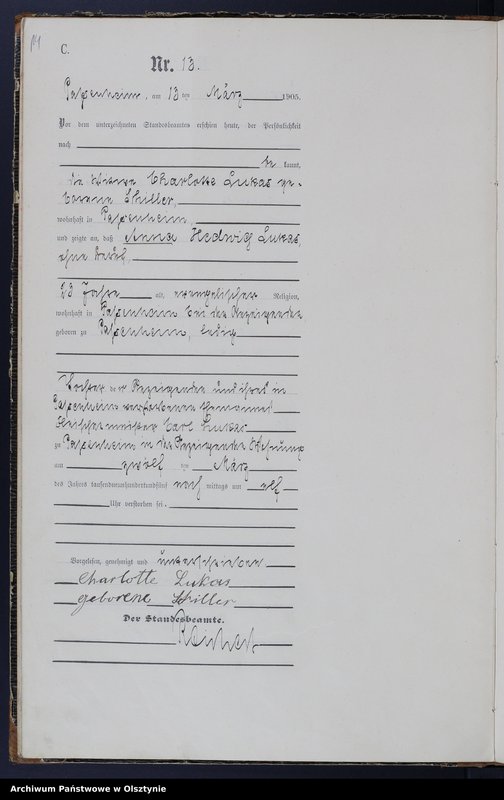 C.
Nr. 13.
Passenheim, am 13 ten März 1905.
Vor dem unterzeichneten Standesbeamten erschien heute, der Persönlichkeit
nach
be kannt,
die Witwe Charlotte Lukas ge-
borene Schiller,
wohnhaft in Passenheim
und zeigte an, daß Anna Hedwig Lukas,
ohne Beruf,
23 Jahre alt, evangelischer Religion,
wohnhaft in Passenheim bei der Anzeigenden
geboren zu Passenheim, ledig
Tochter der Anzeigenden und ihres in
Passenheim verstorbenen Ehemannes
Carl Lukas
zu Passenheim in der Anzeigenden Wohnung
am zwölf ten März
des Jahres tausendneunhundertundfünf nach mittags um elf
Uhr verstorben sei.
Vorgelesen, genehmigt und unterschrieben
Charlotte Lukas
geborene Schiller
Der Standesbeamte.
Archiwum Państwowe w Olsztynie